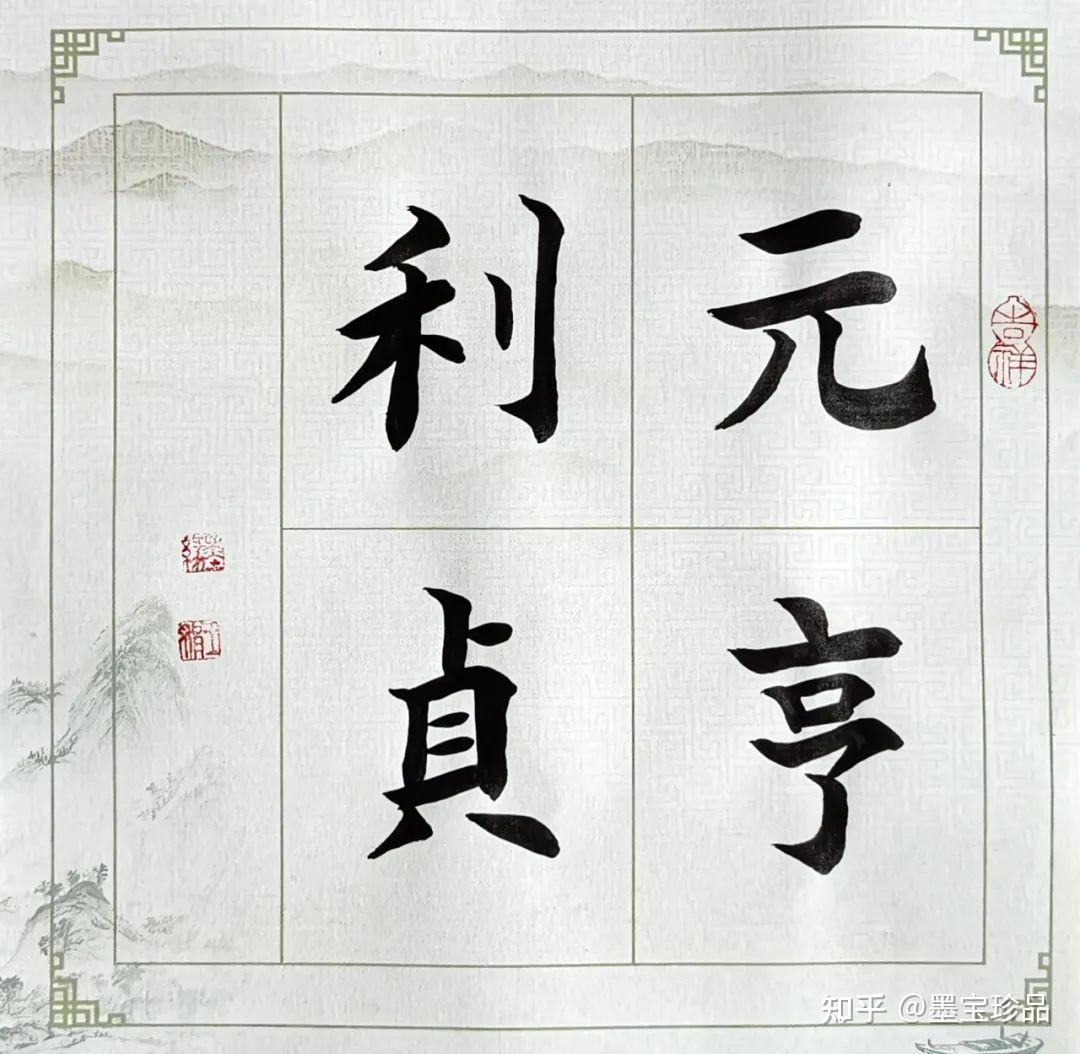 元亨
利貞
吉祥
知乎 @墨宝珍品